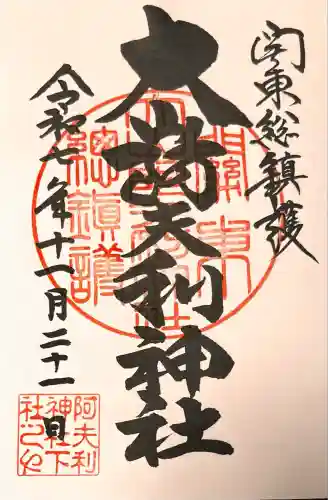 関東総鎮護
大山阿夫利神社
令和七年十一月二十一日
關東
總鎮護
阿夫利
神社下
社之印